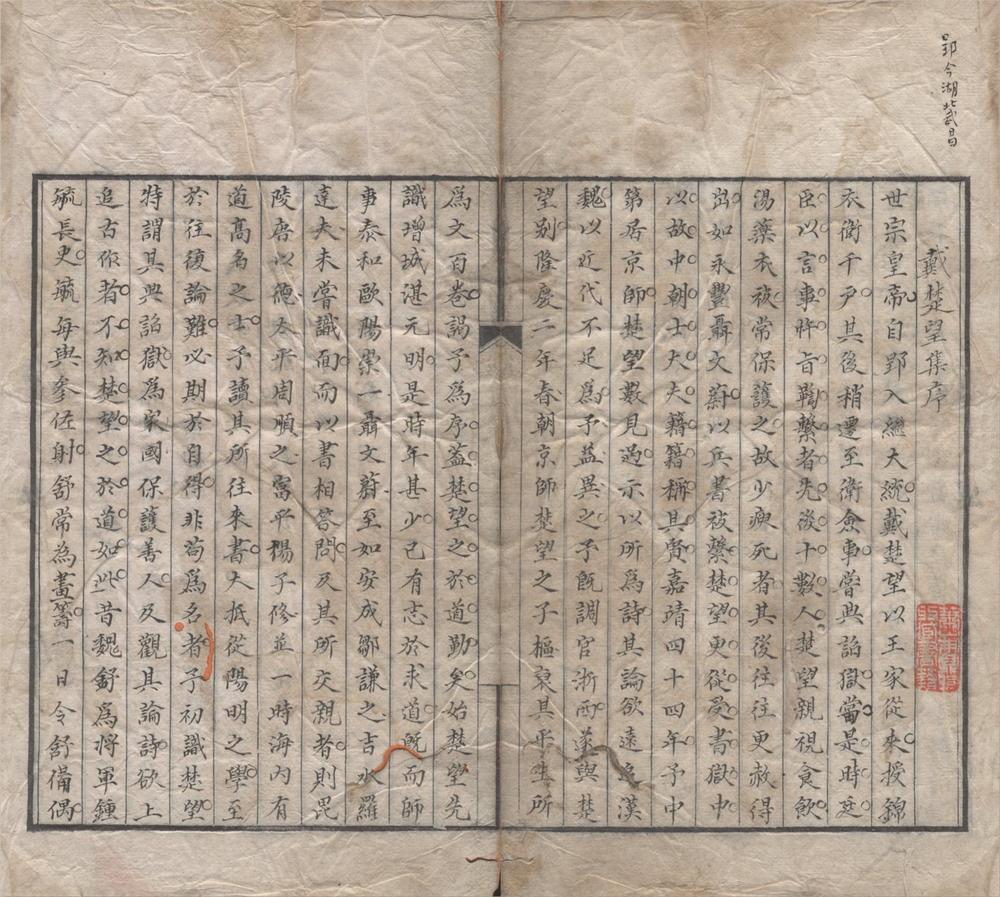 郢今湖北武昌
戴楚望集序
世宗皇帝自郢入繼大統戴楚望以王家從來授錦
衣衛千戶其後稍遷至衛僉事嘗典詔獄當是時廷
臣以言事忤旨鞫繫者先後十數人楚望親視食飲
湯藥衣被常保護之故少瘐死者其後往往更赦得
出如永豐聶文蔚以兵書被繫楚望更從受書獄中
以故中朝士大夫籍籍稱其賢嘉靖四十四年予中
第居京師楚望數見過示以所為詩其論欲遠追漢
魏以近代不足為予益異之予既調官浙西遂與楚
望別隆慶二年春朝京師楚望之子樞裒其平生所
為文百卷謁予為序蓋楚望之於道勤矣始楚望先
識增城湛元明是時年甚少已有志於求道既而師
事泰和歐陽崇一聶文蔚至如安成鄒謙之吉水羅
達夫未嘗識面而以書相答問及其所交親者則毘
陵唐以德太平周順之富平楊子修並一時海內有
道高名之士予讀其所往來書大抵從陽明之學至
於往復論難必期於自得非茍爲名者予初識楚望
特謂其典詔獄爲家國保護善人及觀其論詩欲上
追古作者不知楚望之於道如此昔魏舒爲將軍鍾
毓長史毓每與參佐射舒常為畫籌一日令舒備偶